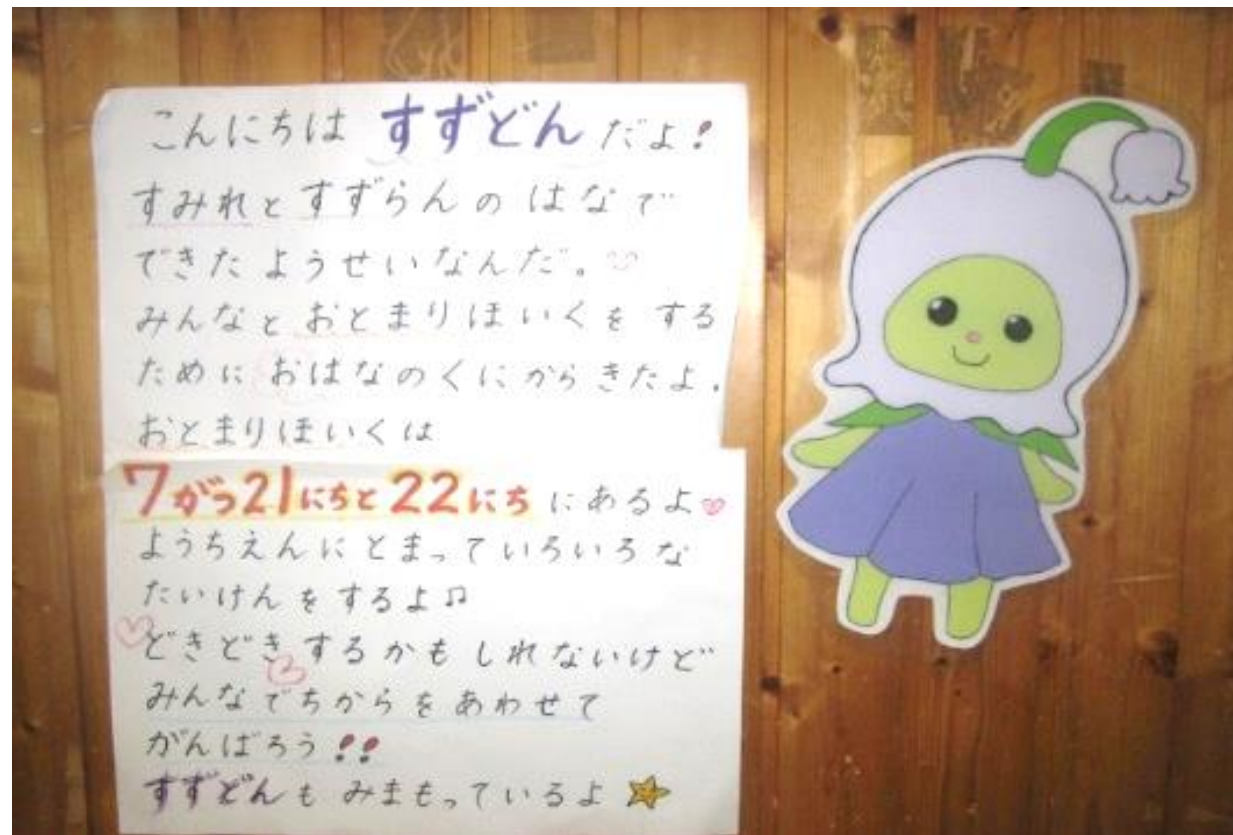 こんにちは すずどん だよ!
すみれとすずらんの はなで
できた ようせいなんだ。
みんなと おとまりほいくを する
ために おはなのくにから きたよ.
おとまりほいくは
7がつ21にちと22にち にあるよ♡
ようちえんに とまって いろいろな
たいけんを するよ♫
どきどき するかも しれないけど
みんなで ちからを あわせて
がんばろう!!
すずどんも みまもっているよ